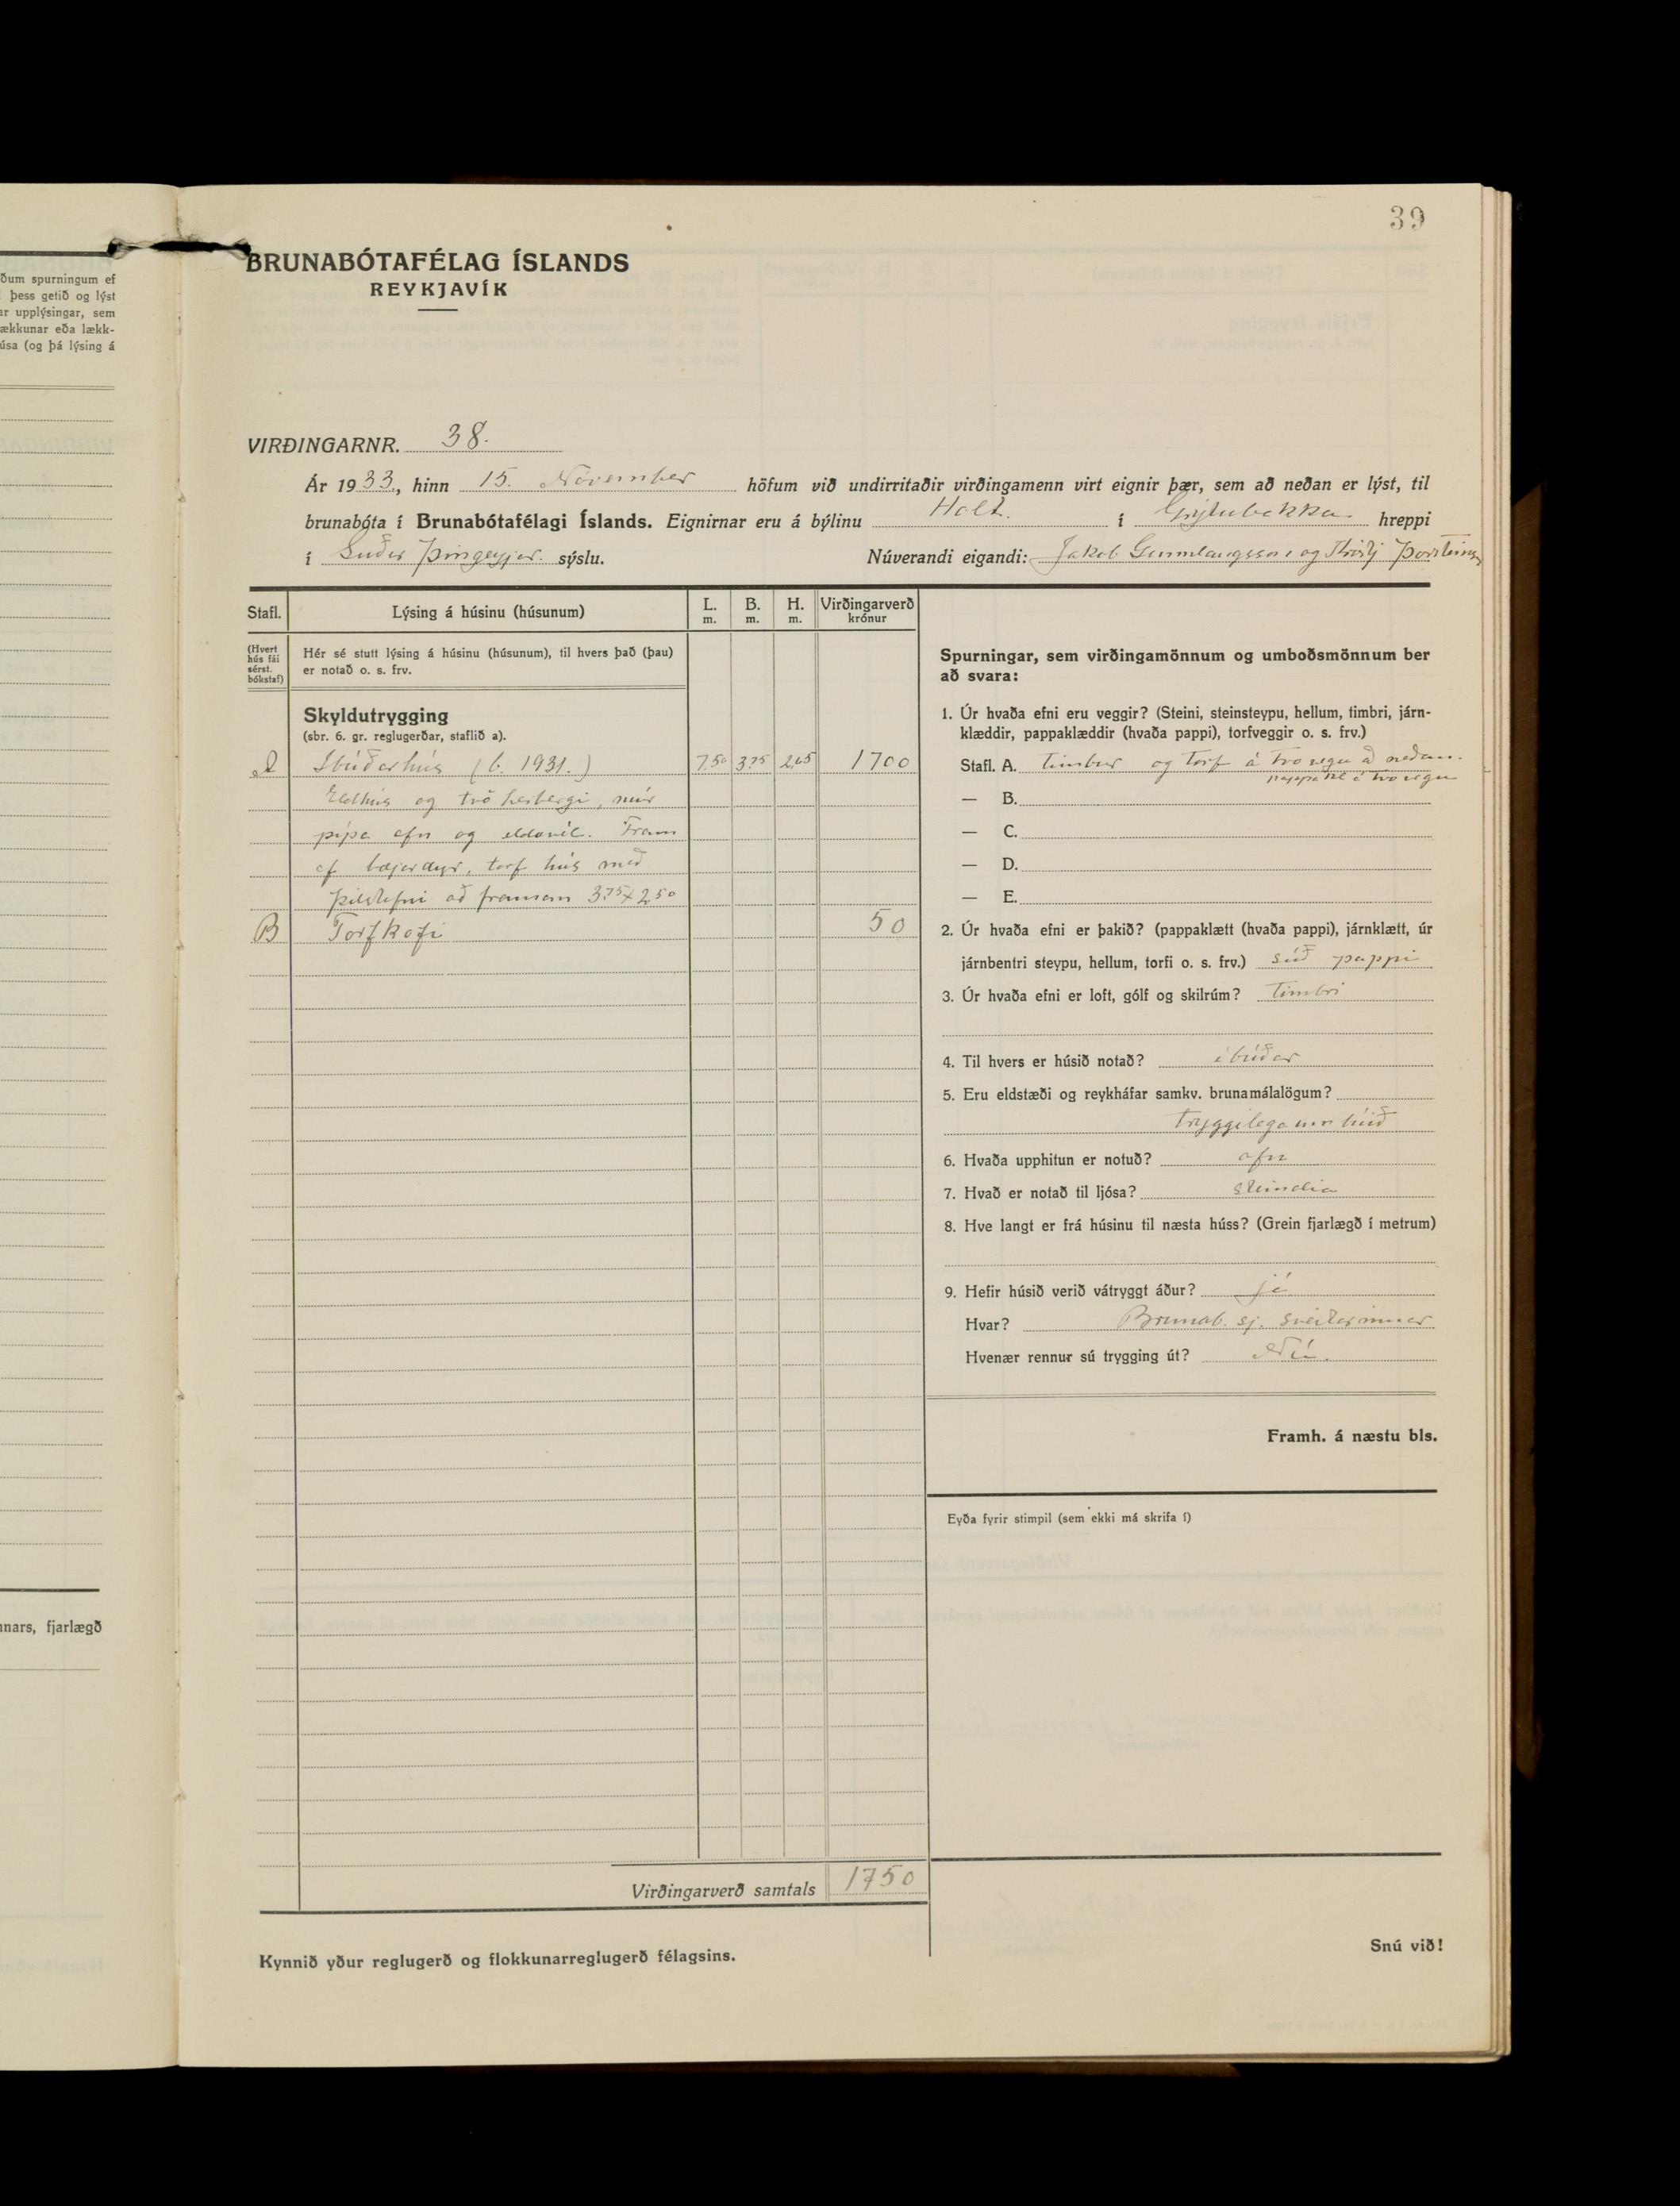 39
ðum spurningum ef
þess getið og lýst
ar upplýsingar, sem
ækkunar eða lækk-
úsa (og þá lýsing á
nnars, fjarlægð
BRUNABÓTAFÉLAG ÍSLANDS
REYKJAVÍK
VIRÐINGARNR. 38.
Ár 1933, hinn 15. November höfum við undirritaðir virðingamenn virt eignir þær, sem að neðan er lýst, til
brunabóta í Brunabótafélagi Íslands. Eignirnar eru á býlinu Holt. í Grýtubakka hreppi
í Suður Þingeyjar sýslu. Núverandi eigandi: Jakob Gunnlaugsson og
Stafl. Lýsing á húsinu (húsunum) L. m. B. m. H. m. Virðingarverð krónur
(Hvert
hús fái
sérst.
bókstaf)
Hér sé stutt lýsing á húsinu (húsunum), til hvers það (þau)
er notað o. s. frv.
Skyldutrygging
(sbr. 6. gr. reglugerðar, staflið a).
A Íbúðarhús (b. 1931.) 7.50 3.75 2.65 1700
Eldhús og tvö herbergi, múr
pípa ofn og eldavél. Fram
af bæjardyr, torf hús með
þilstefni að framan 3.75 x 2.50
B Torfkofi 50
Virðingarverð samtals 1750
Kynnið yður reglugerð og flokkunarreglugerð félagsins.
Spurningar, sem virðingamönnum og umboðsmönnum ber
að svara:
1. Úr hvaða efni eru veggir? (Steini, steinsteypu, hellum, timbri, járn-
klæddir, pappaklæddir (hvaða pappi), torfveggir o. s. frv.)
Stafl. A. timbur og torf á tvo vegu að neðan.
pappakl á tvo vegu
— B.
— C.
— D.
— E.
2. Úr hvaða efni er þakið? (pappaklætt (hvaða pappi), járnklætt, úr
járnbentri steypu, hellum, torfi o. s. frv.) súð pappi
3. Úr hvaða efni er loft, gólf og skilrúm? timbri
4. Til hvers er húsið notað? íbúðar
5. Eru eldstæði og reykháfar samkv. brunamálalögum?
tryggilega um búið
6. Hvaða upphitun er notuð? ofn
7. Hvað er notað til ljósa? steinolia
8. Hve langt er frá húsinu til næsta húss? (Grein fjarlægð í metrum)
9. Hefir húsið verið vátryggt áður? já
Hvar? Brunab. sj. sveitarinnar
Hvenær rennur sú trygging út? Nú.
Framh. á næstu bls.
Eyða fyrir stimpil (sem ekki má skrifa í)
Snú við!